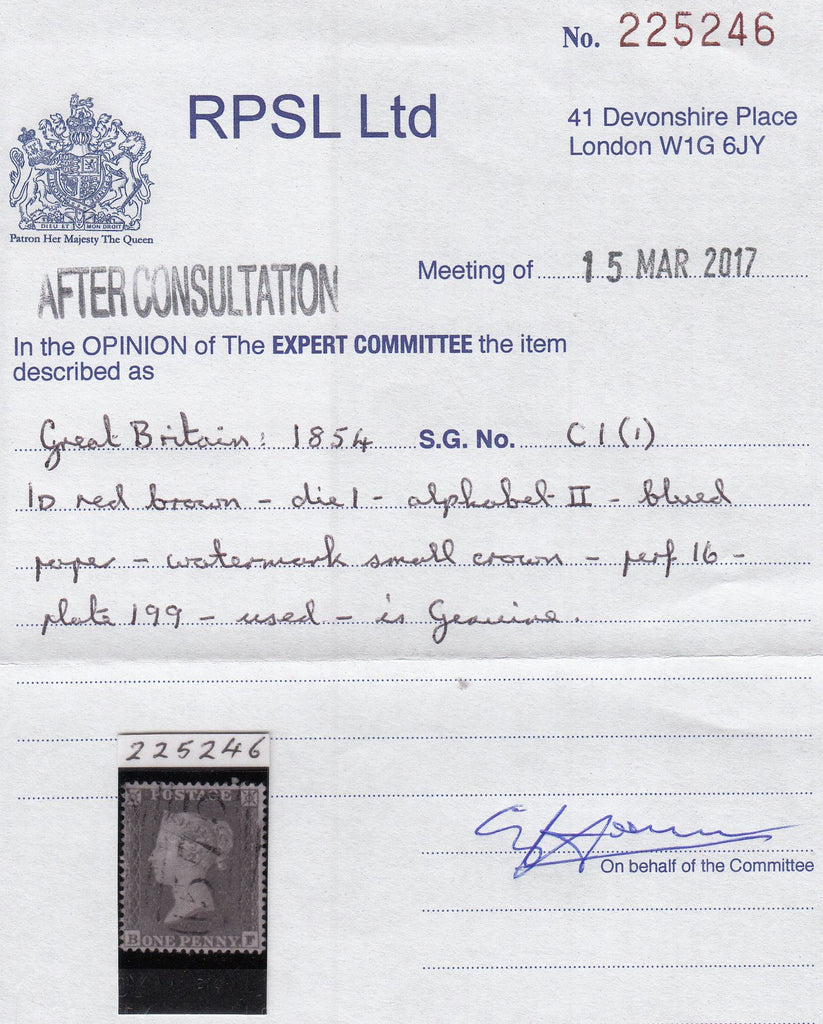 No. 225246
RPSL Ltd
41 Devonshire Place
London W1G 6JY
DIEU ET MON DROIT
Patron Her Majesty The Queen
AFTER CONSULTATION
Meeting of 15 MAR 2017
In the OPINION of The EXPERT COMMITTEE the item
described as
Great Britain: 1854 S.G. No. C1(1)
1D red brown - die 1 - alphabet II - blued
paper - watermark small crown - perf 16 -
plate 199 - used - is Genuine.
225246
POSTAGE
B ONE PENNY F
On behalf of the Committee